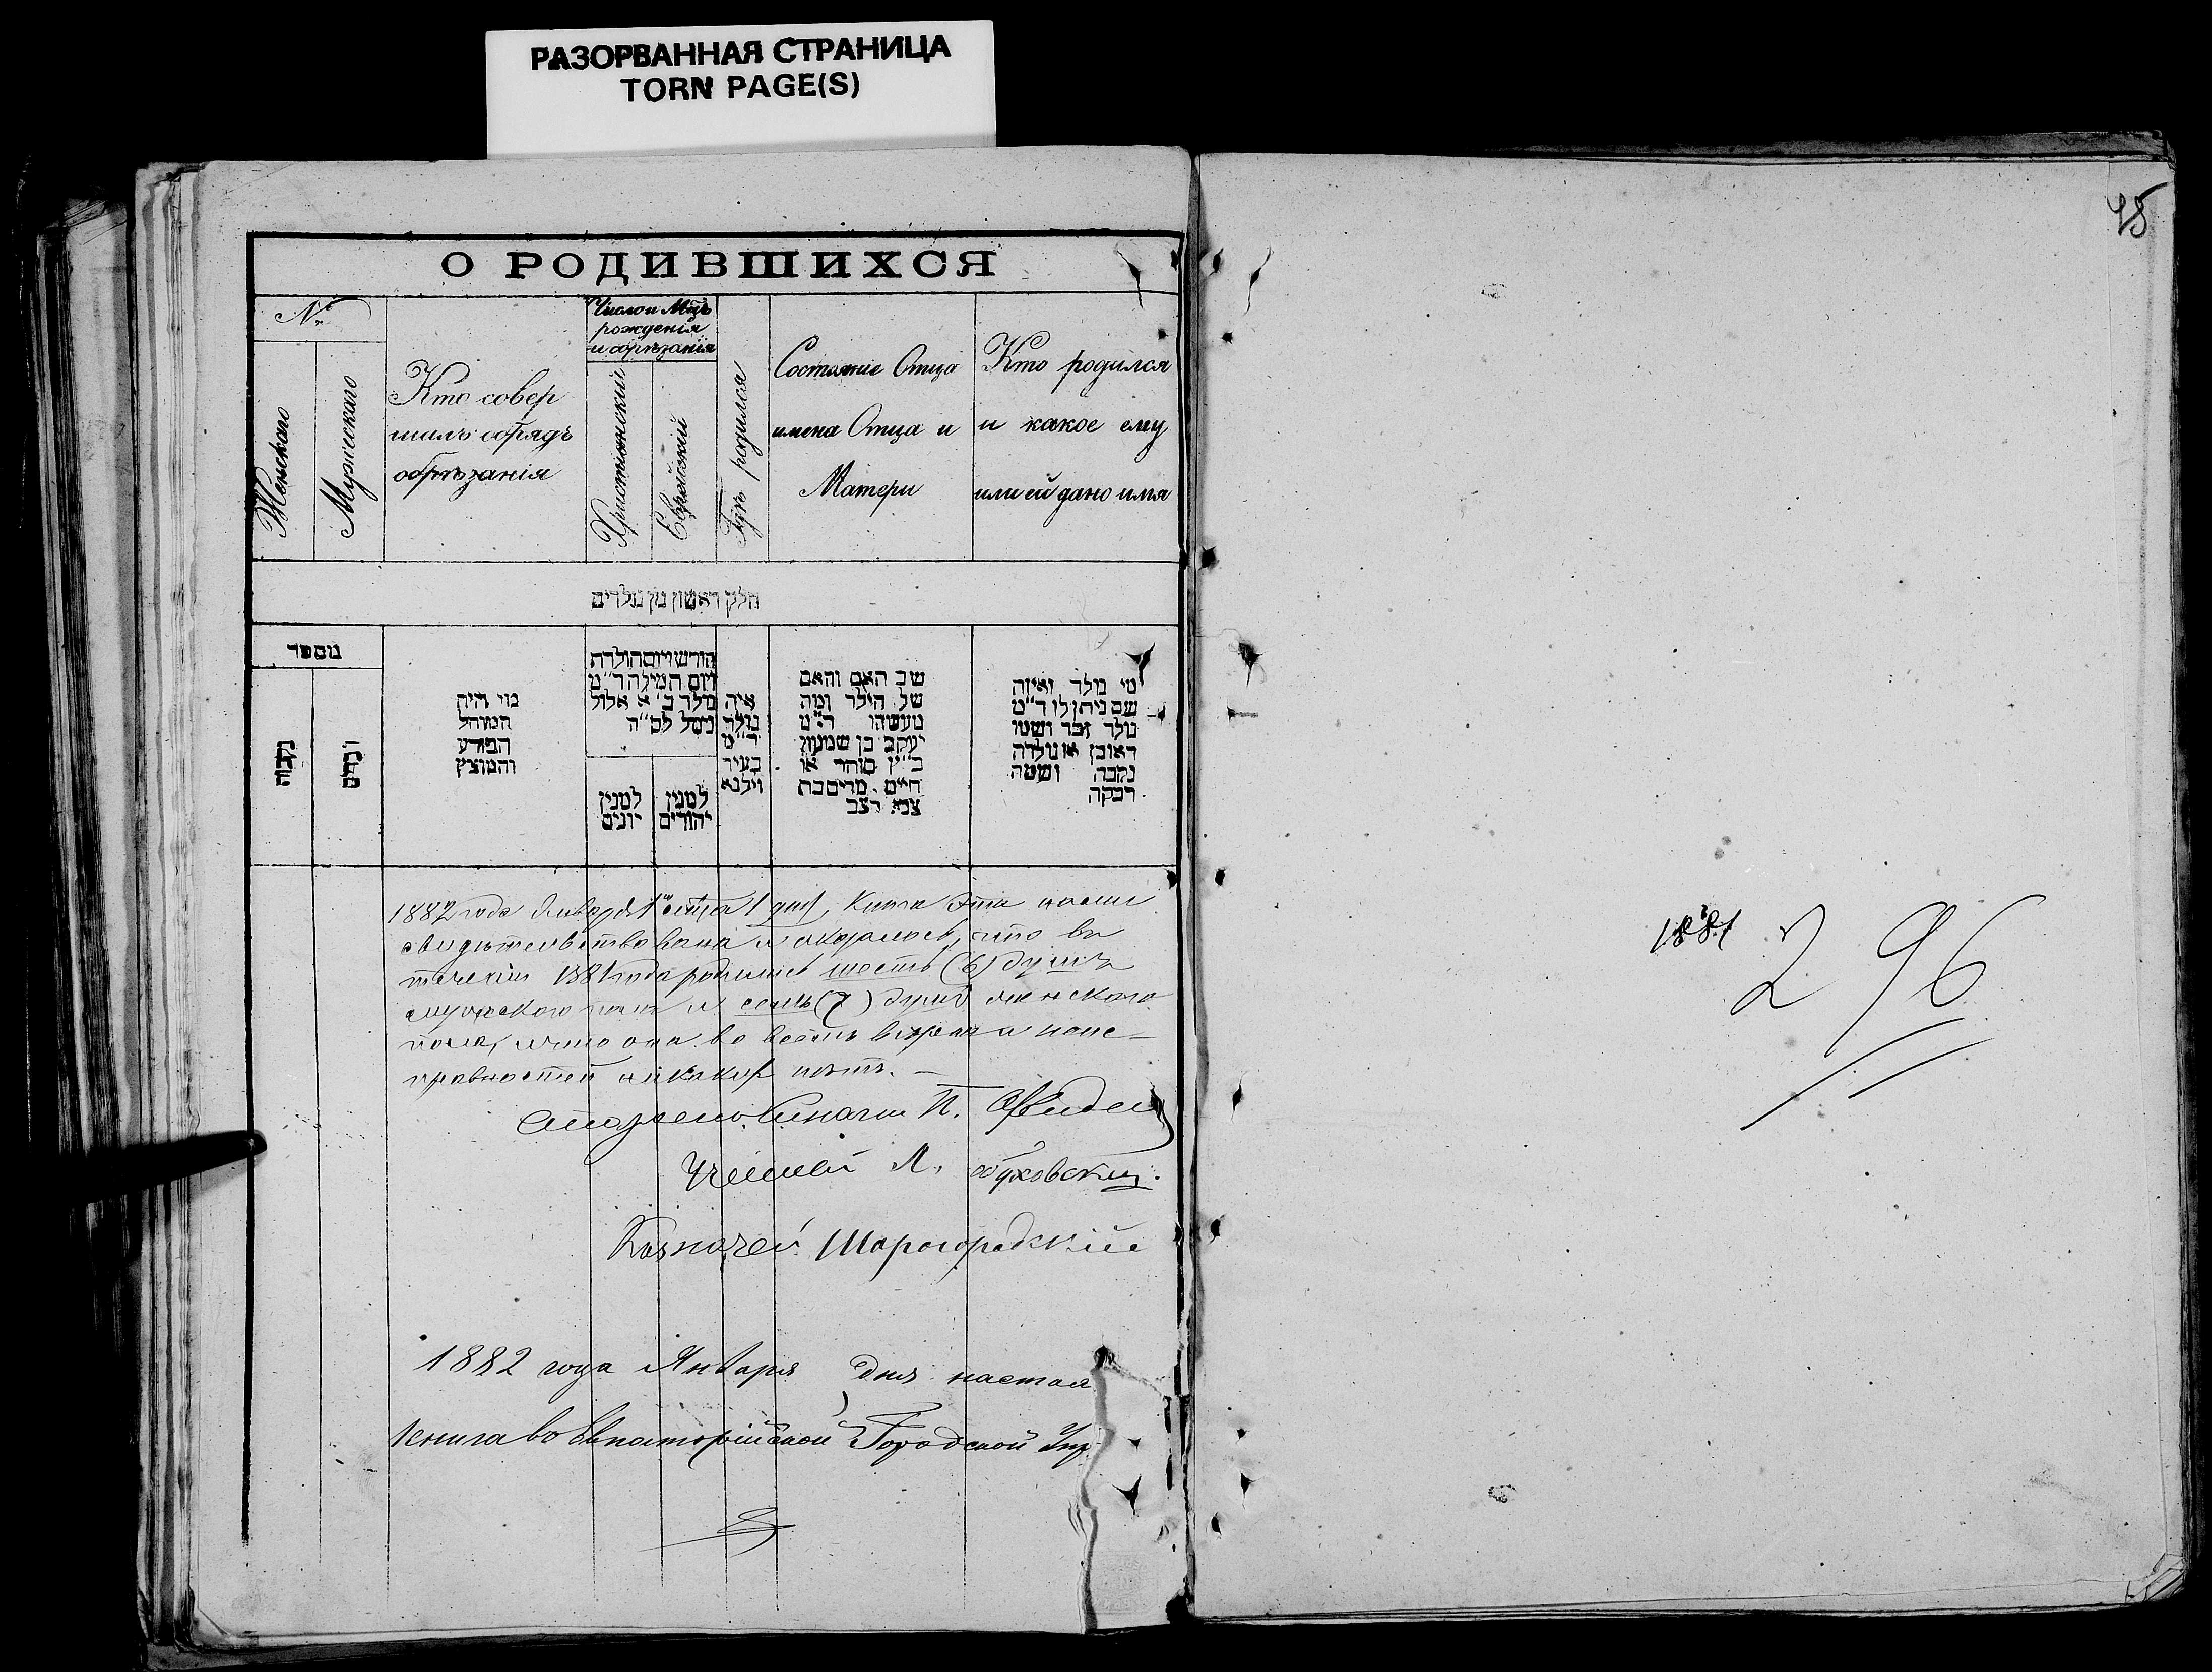 РАЗОРВАННАЯ СТРАНИЦА
TORN PAGE(S)
О РОДИВШИХСЯ
№
Женскаго
Мужскаго
Кто совер
шалъ обрядъ
обрѣзанія
Число и Мцъ
рожденія
и обрѣзанія
Христіанскій
Еврейскій
Гдѣ родился
Состояніе Отца
имена Отца и
Матери
Кто родился
и какое ему
или ей дано имя
חלק ראשון מן נולדים
מספר
נקבות
זכרים
מי היה
המוהל
הפורע
והמוצץ
חודש ויום הולדת
ויום המילה ד"מ
נולד ב' א אלול
נימל לט"ה
למנין
יונים
למנין
יהודים
איה
נולד
ד"מ
בעיר
וילנא
שם האב והאם
של הילד ומה
מעשיהו ד"מ
יעקב בן שמעון
כ"ץ סוחר או
חיים
מי נולד ואיזה
שם ניתן לו ד"מ
נולד זכר ושמו
ראובן או נולדה
נקבה ושמה
רבקה
1882 года Января дня, Книга Эта нами
свидѣтельствована и оказалось, что въ
теченіи 1881 года родились шесть (6) душъ
мужскаго пола и семь (7) душъ женскаго
пола, и что она во всемъ вѣрна и неис-
правностей никакихъ нѣтъ. —
П.
Ученый А. Обуховскій.
Казначей Шарогородскій
1882 года Января дня настоя
книга во Евпаторійской Городской Упр
45
1881
296